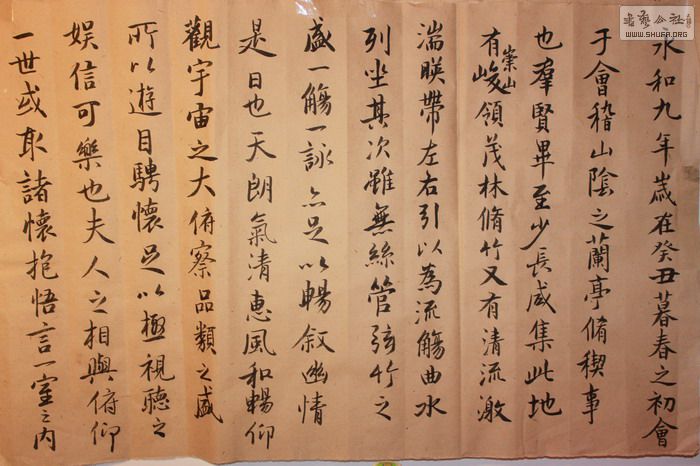 永和九年歲在癸丑暮春之初會
于會稽山陰之蘭亭脩稧事
也羣賢畢至少長咸集此地
有崇山峻領茂林脩竹又有清流激
湍暎帶左右引以為流觴曲水
列坐其次雖無絲管弦竹之
盛一觴一詠亦足以暢叙幽情
是日也天朗氣清惠風和暢仰
觀宇宙之大俯察品類之盛
所以遊目騁懷足以極視聽之
娛信可樂也夫人之相與俯仰
一世或取諸懷抱悟言一室之內
書藝公社
WWW.SHUFA.ORG